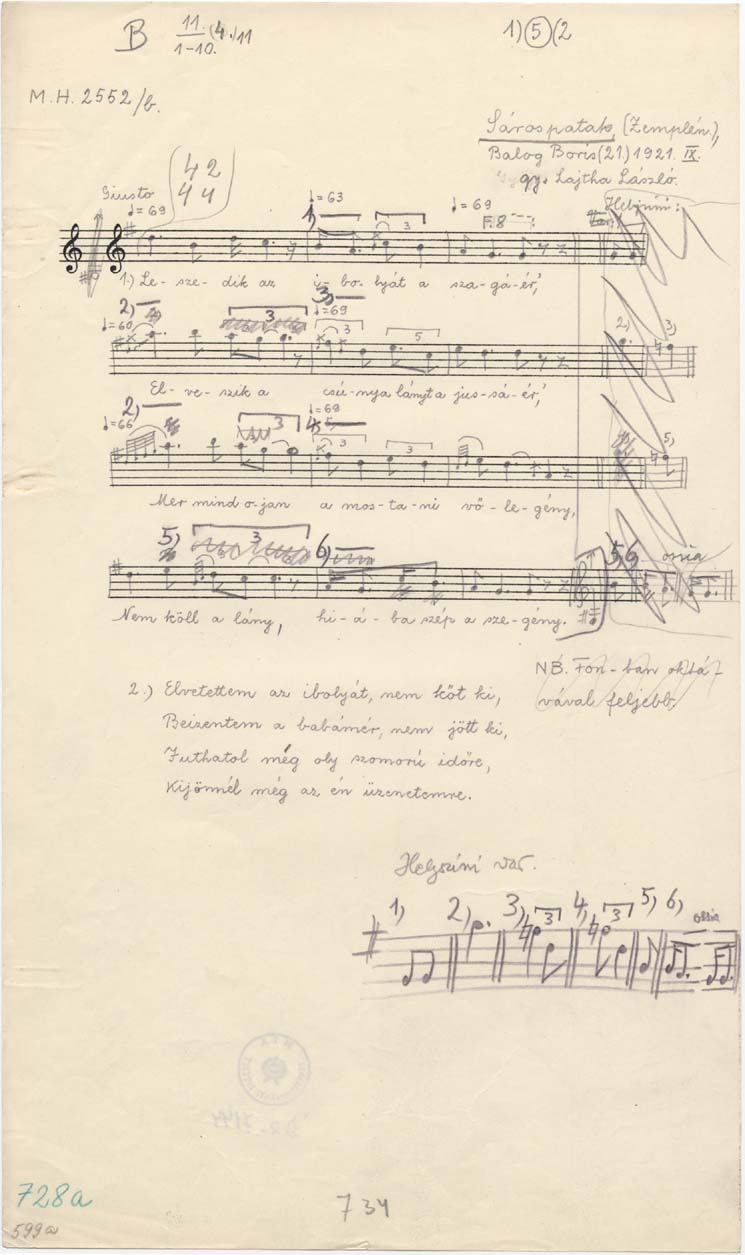 B 11.(4.)11
1-10.
1) 5 (2
M.H. 2552/b.
Sárospatak, (Zemplén.),
Balog Boris (21.) 1921. IX.
gy. Lajtha László.
Giusto
♩=69
42
44
♩=63
♩=69
F.8
Helyszíni:
1)
3
1.) Le- sze- dik az i- bo- lyát a sza- gá- ér,'
2)
♩=60
3
3)
♩=69
3
5
2.)
3)
El- ve- szik a csú- nya lányt a jus- sá- ér,'
2)
♩=66
3
4)
♩=69
3
3
5)
Mer mind o- jan a mos- ta- ni vő- le- gény,
5)
3
6)
5,6,
ossia
Nem köll a lány, hi- á- ba szép a sze- gény.
NB. Fon-ban oktá-
vával feljebb.
2.) Elvetettem az ibolyát, nem kőt ki,
Beizentem a babámér, nem jött ki,
Juthatol még oly szomorú időre,
Kijönnél még az én üzenetemre.
Helyszíni var.
1) 2) 3) 3 4) 3 5) 6) ossia
728a
599a
734